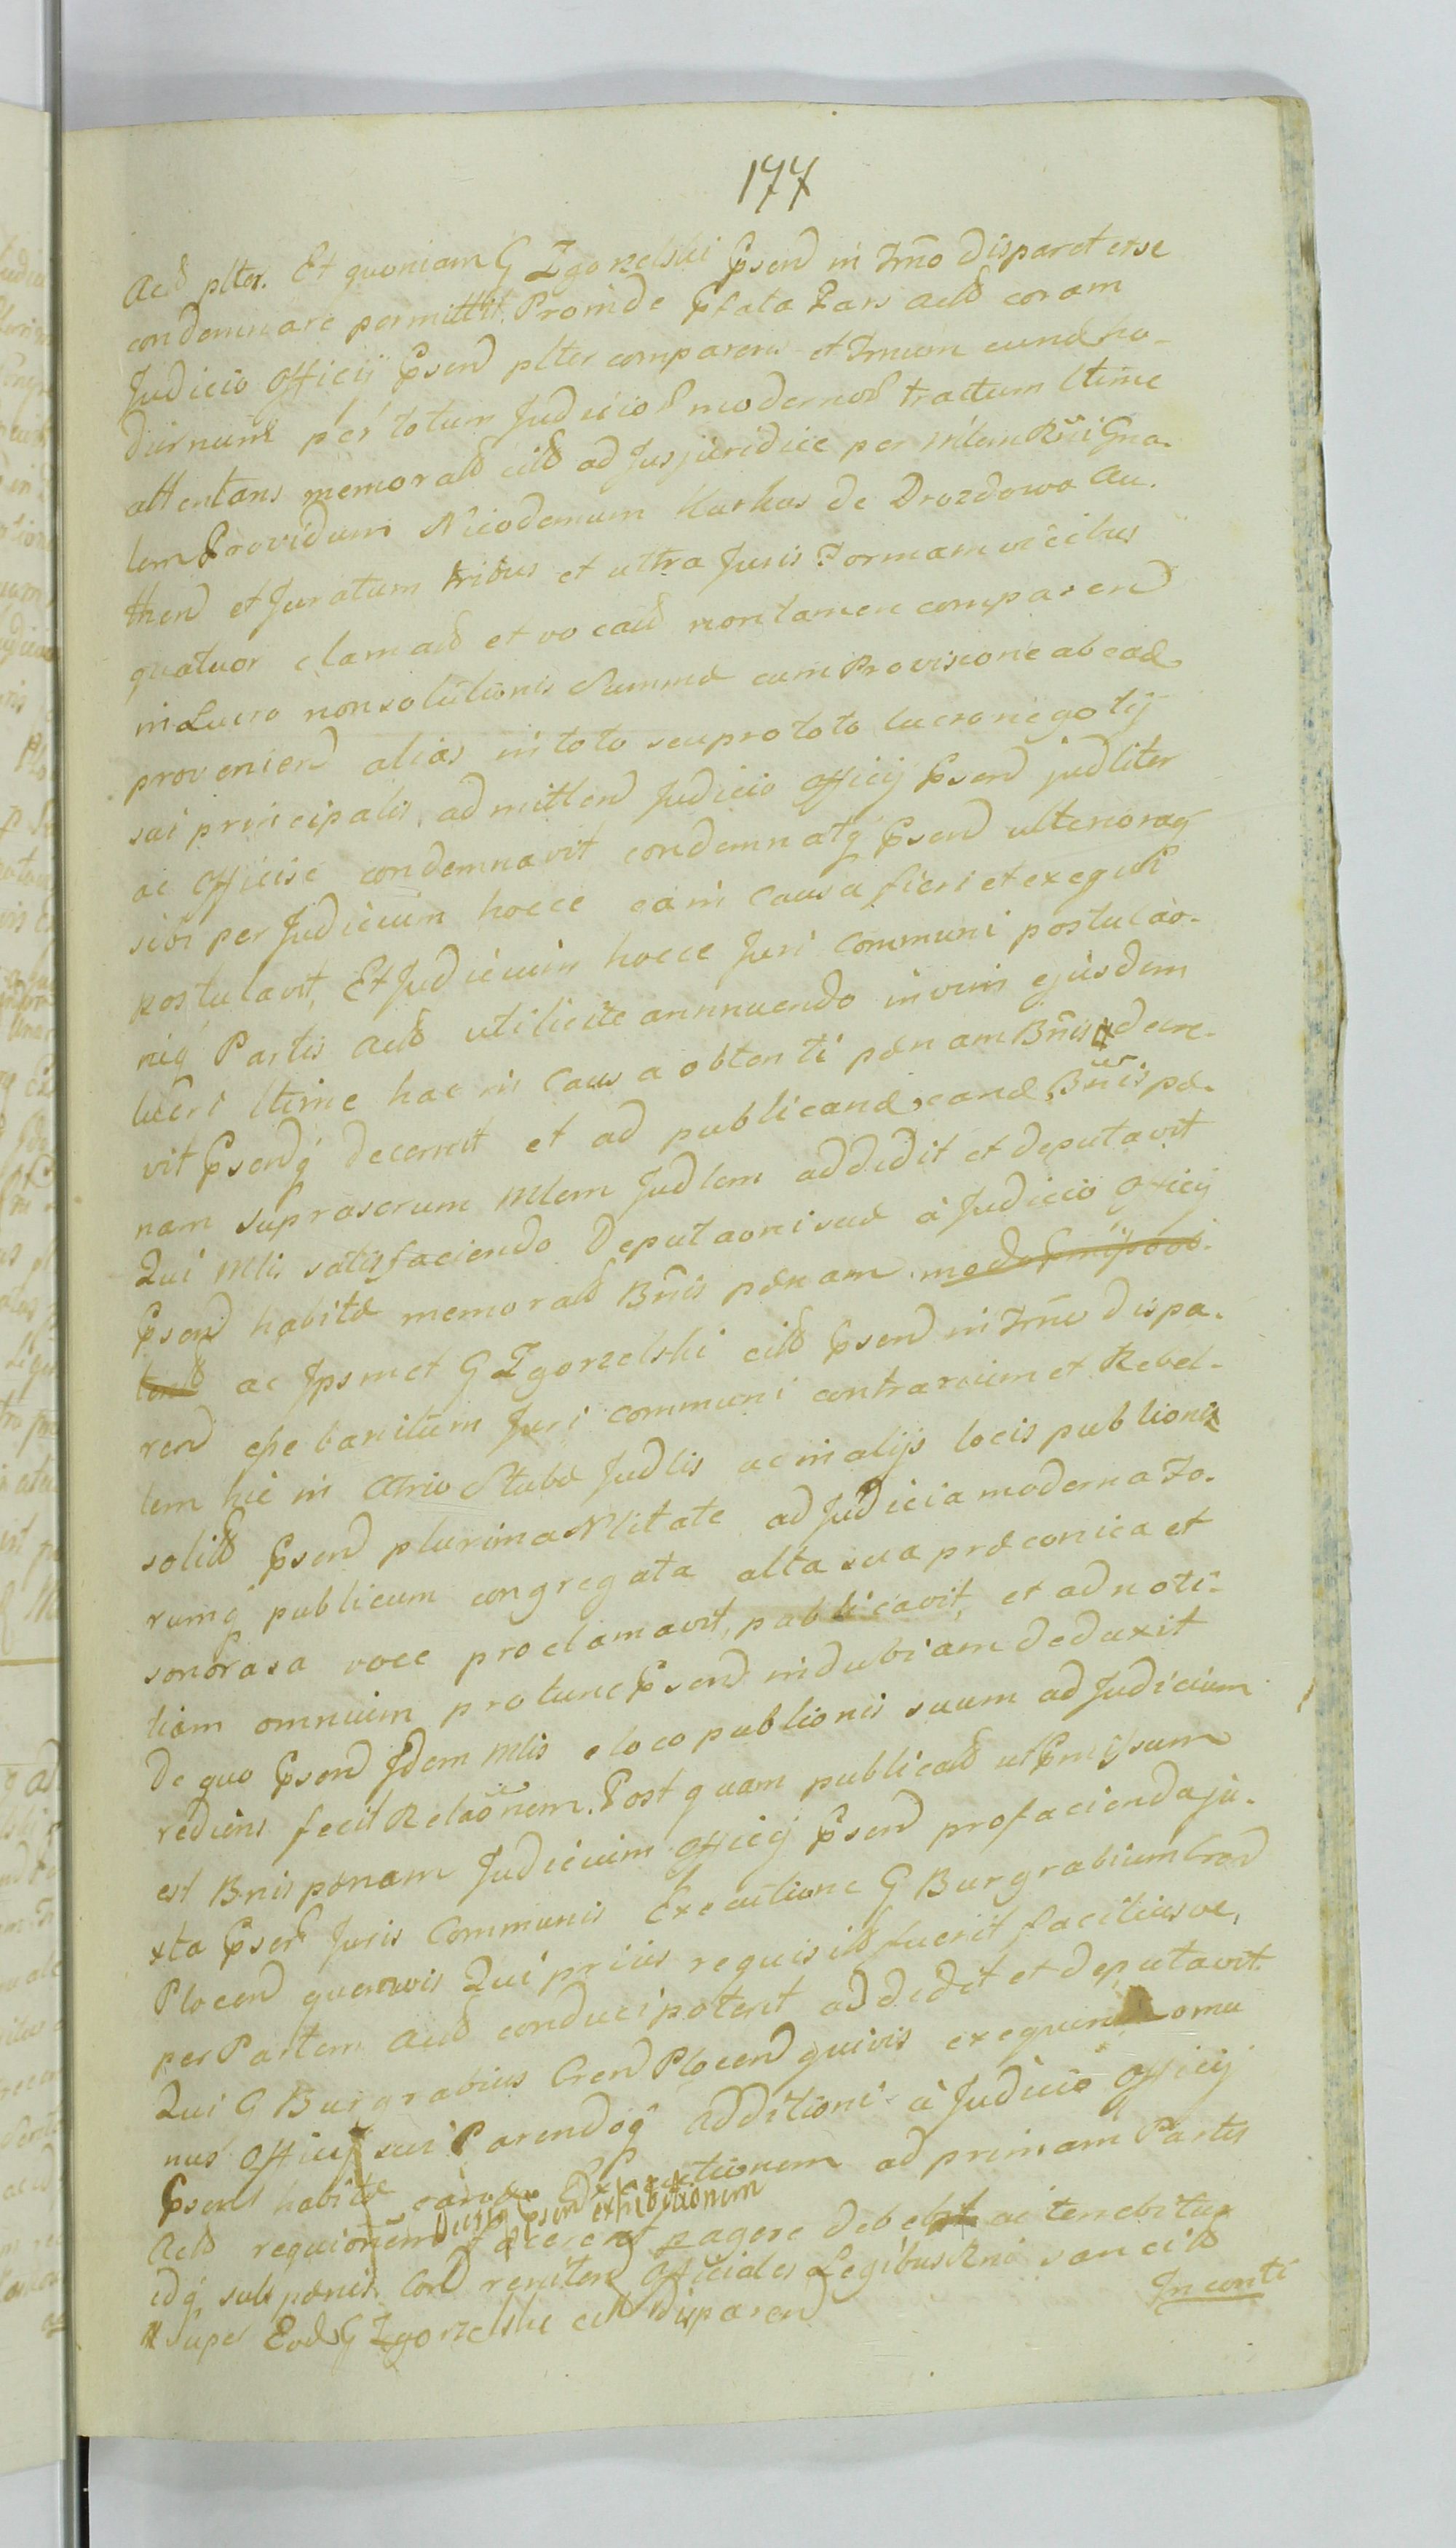 177
Actd plter. Et quoniam G Zgorzelski Psend in Trno disparet et se
condemnare permittit. Proinde Pfata Pars actd coram
Judicio Officii Psend plter comparens et Trnum eund ho-
diernum per totum Judiciod modernod tractum ltime
attentans memoratd citd ad Jus juridice per Mlem Rni Gna-
lem Providum Nicodemum Karkos de Drozdowo Au-
then et Juratum tribus et ultra Juris Formam vicibus
quatuor clamatd et vocatd non tamen comparend
in Lucro non solutionis Summæ cum Provisione ab ead
proveniend alias in toto seu pro toto lucro negotij
sui principalis, admittend Judicio Officij Psend judliter
ac Officise condemnavit condemnatq Psend ulteriorag
sibi per Judicium hocce ea in Causa fieri et exequi
postulavit, Et Judicium hocce Juri Communi postulao-
niq Partis actd uti licite annuendo in vim ejusdem
lucri ltime hac in Causa obtenti pænam Bnis decre-
vit Psendq decernit et ad publicand eand Bnis pæ-
nam suprascrum Mlem Judlem addidit et deputavit
Qui Mlis satisfaciendo Deputaoni suæ à Judicio Officij
Psend habitæ memoratd Bnis pænam
ac Ipsmet G Zgorzelski citd Psend in Trno dispa-
rend eße banitum Juri communi contrarium et Rebel-
lem hic in Atrio Stubæ Judlis ac in alijs locis publionis
solitd Psend plurima Nlitate ad Judicia moderna Fo-
rumq publicum congregata alta sua præconica et
sonorosa voce proclamavit, publicavit, et ad noti-
tiam omnium pro tunc Psend indubiam deduxit
De quo Psend Idem Mlis e loco publionis suum ad Judicium
rediens fecit Relaonem. Post quam publicatd ut Pmißum
est Bnis pænam Judicium Officij Psend pro facienda ju-
xta Pser Juris Communis Executione G Burgrabium Crend
Plocend quemvis Qui prius requisitd fuerit faciliusve,
per Partem actd conduci poterit addidit et deputavit.
Qui G Burgrabius Crend Plocend quivis exequend omu
nus Officij sui Parendoq additioni à Judicio Officij
Psend habitæ Executionem ad primam Partis
Jurisq Psend exhibitionem
Actd requionem facere peragere debebit ac tenebitur
idq sub pænis Cond renitend Officiales Legibus Rni sancitd
super Eod G Zgorzelski citd disparend
In conti